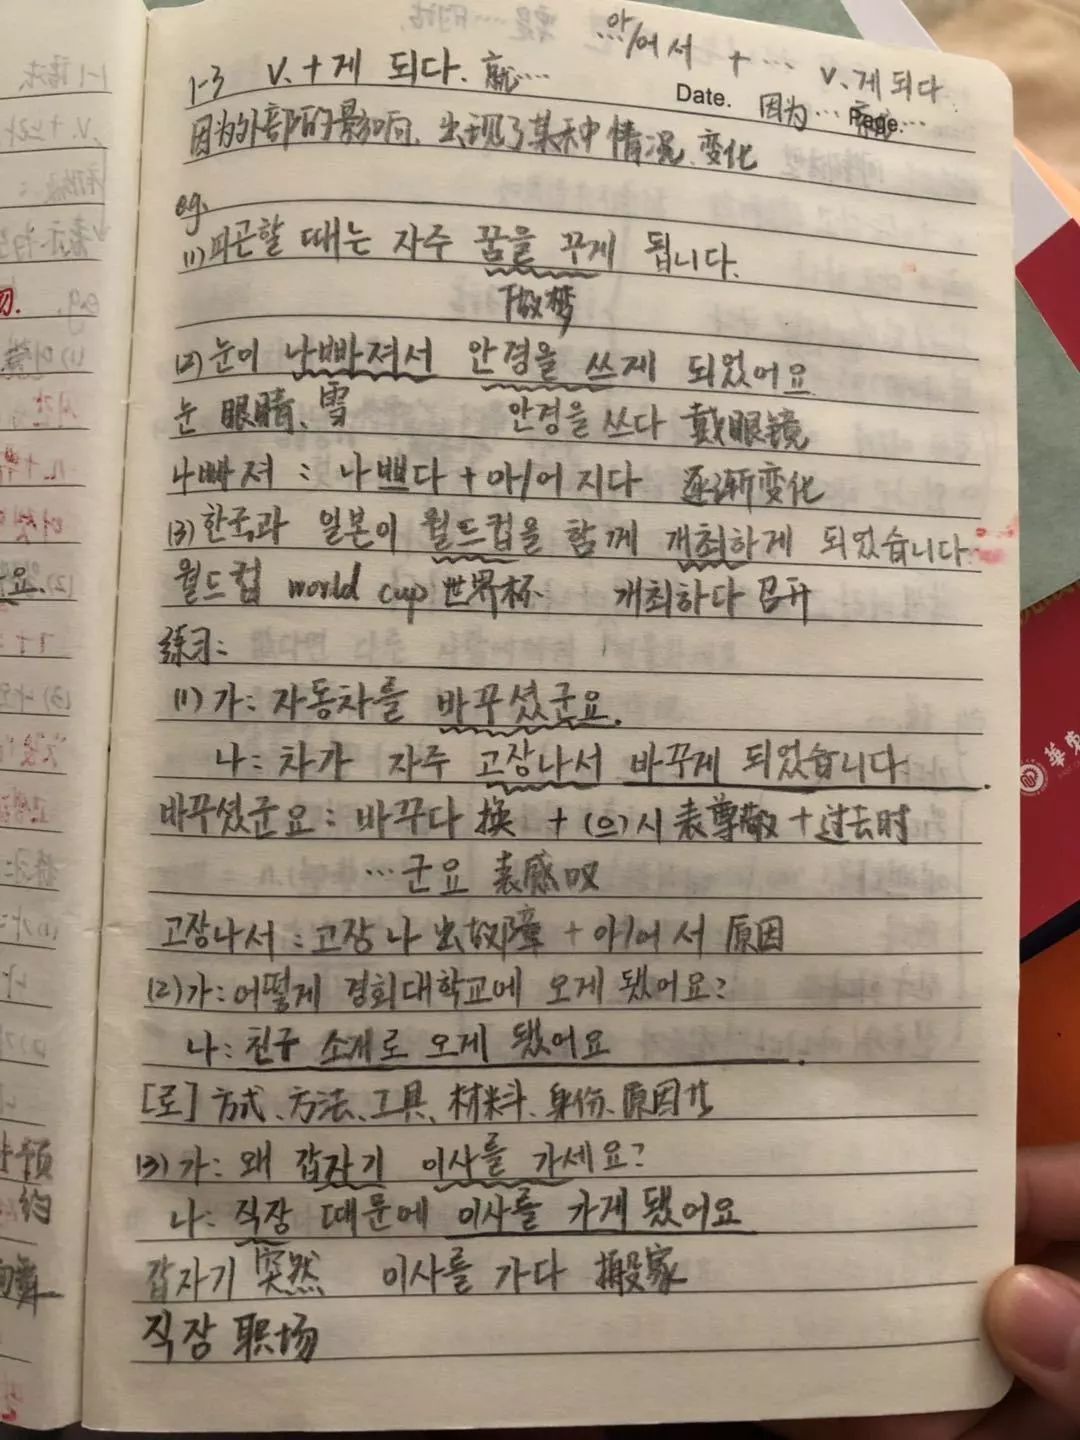 아/어서 + … V.게 되다.
1-3 V.+게 되다. 就……
Date. 因为…就……
Page.
因为外部的影响，出现了某种情况、变化
eg.
(1)피곤할 때는 자주 꿈을 꾸게 됩니다.
做梦
(2)눈이 나빠져서 안경을 쓰게 되었어요
눈 眼睛、雪 안경을 쓰다 戴眼镜
나빠져 : 나쁘다 + 아/어 지다 逐渐变化
(3)한국과 일본이 월드컵을 함께 개최하게 되었습니다.
월드컵 world cup 世界杯. 개최하다 召开
练习:
(1)가: 자동차를 바꾸셨군요.
나: 차가 자주 고장나서 바꾸게 되었습니다.
바꾸셨군요: 바꾸다 换 + (으)시 表尊敬 + 过去时
…군요 表感叹
고장나서: 고장 나 出故障 + 아/어 서 原因
(2)가: 어떻게 경희대학교에 오게 됐어요?
나: 친구 소개로 오게 됐어요.
[로] 方式、方法、工具、材料、身份、原因
(3)가: 왜 갑자기 이사를 가세요?
나: 직장 때문에 이사를 가게 됐어요
갑자기 突然 이사를 가다 搬家
직장 职场